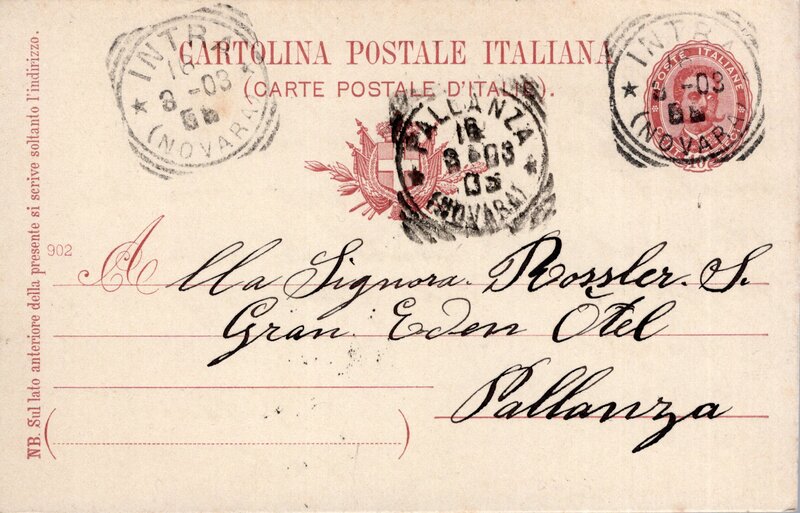 CARTOLINA POSTALE ITALIANA
(CARTE POSTALE D'ITALIE).
INTRA
16
3 -03
(NOVARA)
PALLANZA
16
3 -03
(NOVARA)
INTRA
3 -03
(NOVARA)
POSTE ITALIANE
NB. Sul lato anteriore della presente si scrive soltanto l'indirizzo.
902
Alla Signora. Rossler. S.
Gran. Eden Ötel
Pallanza